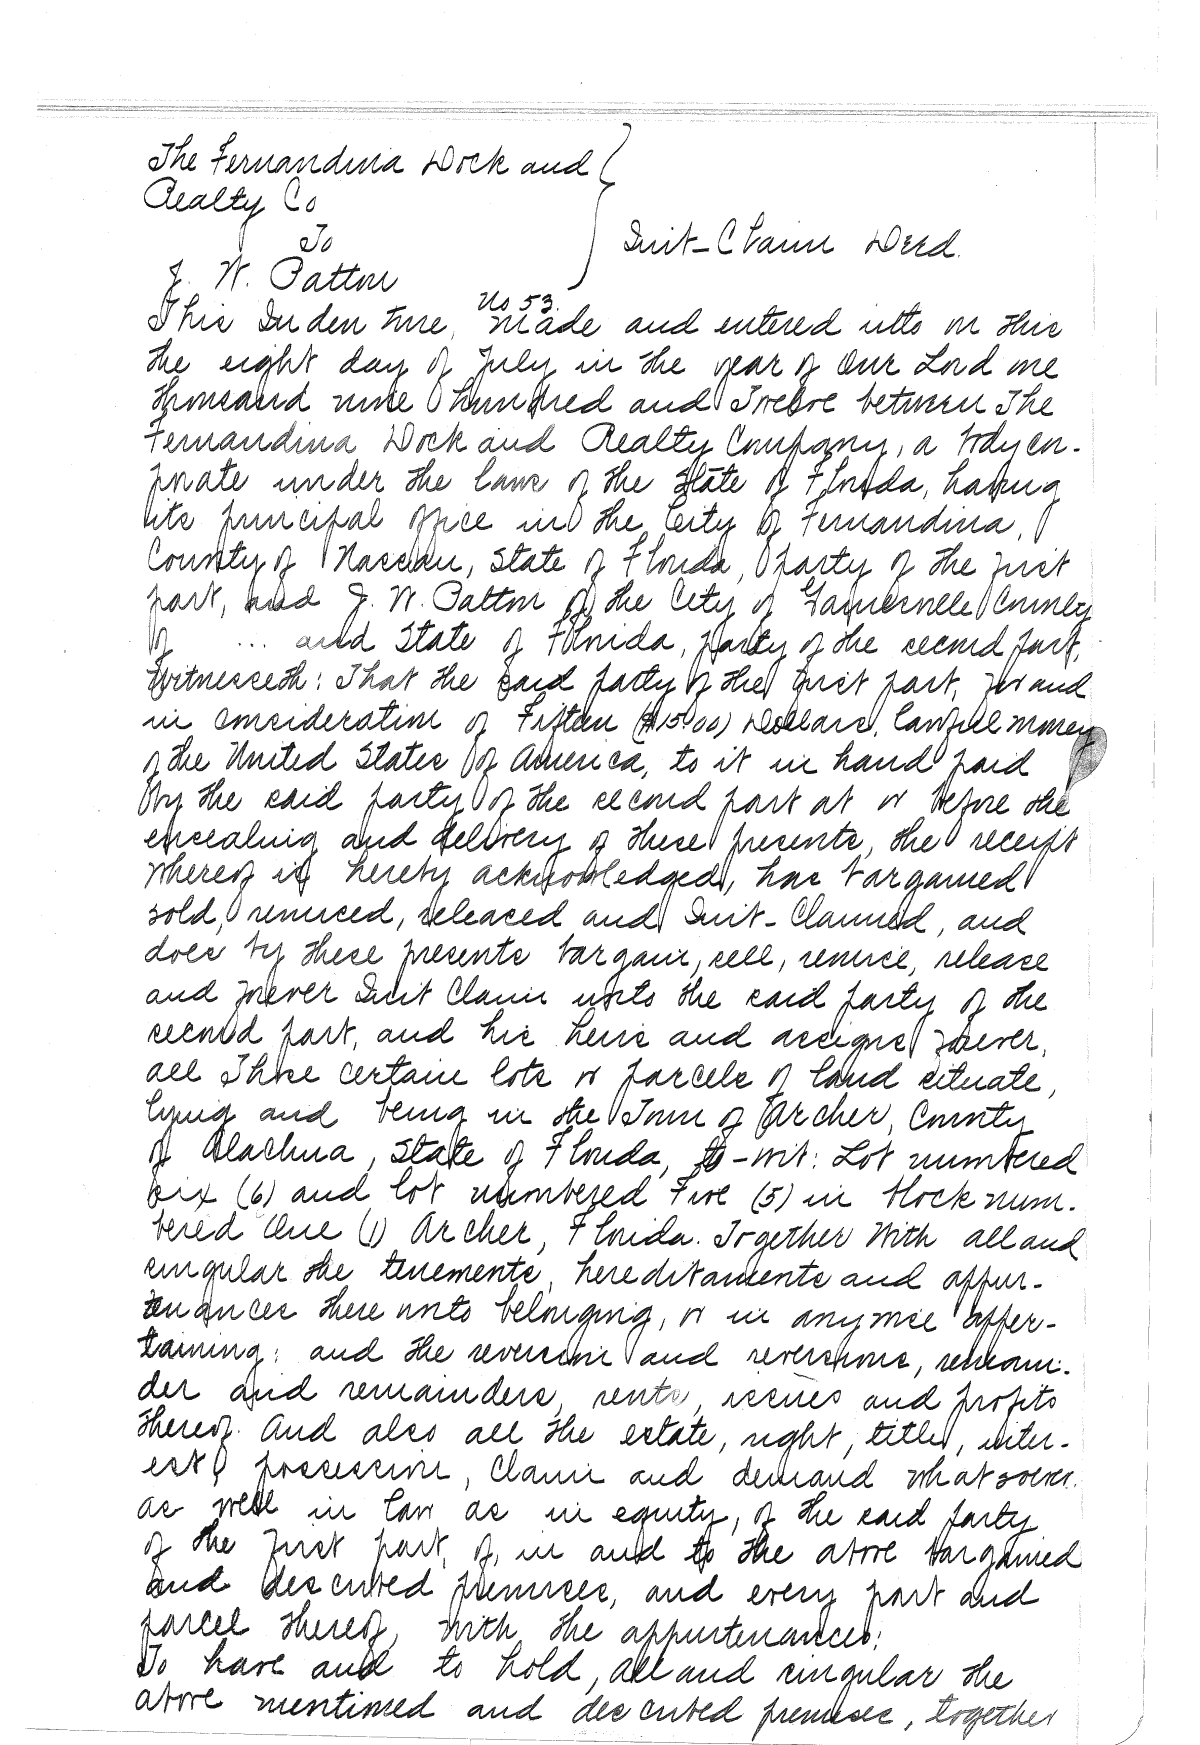 The Fernandina Dock and
Realty Co
To
Quit-Claim Deed.
J. W. Patton
No 53.
This Inden ture, made and entered into on this
the eight day of July in the year of Our Lord one
thousand nine hundred and Twelve between The
Fernandina Dock and Realty Company, a body cor-
porate under the laws of the State of Florida, having
its principal office in the City of Fernandina,
County of Nassau, State of Florida, party of the first
part, and J. W. Patton of the City of Gainesville County
of ... and State of Florida, party of the second part,
Witnesseth: That the said party of the first part, for and
in consideration of Fifteen ($15.00) Dollars, lawfull money
of the United States of America, to it in hand paid
by the said party of the second part at or before the
ensealing and delivery of these presents, the receipt
whereof is hereby acknowledged, has bargained
sold, remised, released and Quit-Claimed, and
does by these presents bargain, sell, remise, release
and forever Quit Claim unto the said party of the
second part, and his heirs and assigns forever,
all Those certain lots or parcels of land situate,
lying and being in the Town of Archer, County
of Alachua, State of Florida, to-wit: Lot numbered
six (6) and lot numbered Five (5) in block num-
bered One (1) Archer, Florida. Together With all and
singular the tenements, hereditaments and appur-
tenances there unto belonging, or in anywise apper-
taining; and the reversion and reversions, remain-
der and remainders, rents, issues and profits
thereof. And also all the estate, right, title, inter-
est, possession, claim and demand whatsoever.
as well in law as in equity, of the said party
of the first part, of, in and to the above bargained
and described premises, and every part and
parcel thereof, with the appurtenances:
To have and to hold, all and singular the
above mentioned and described premises, together